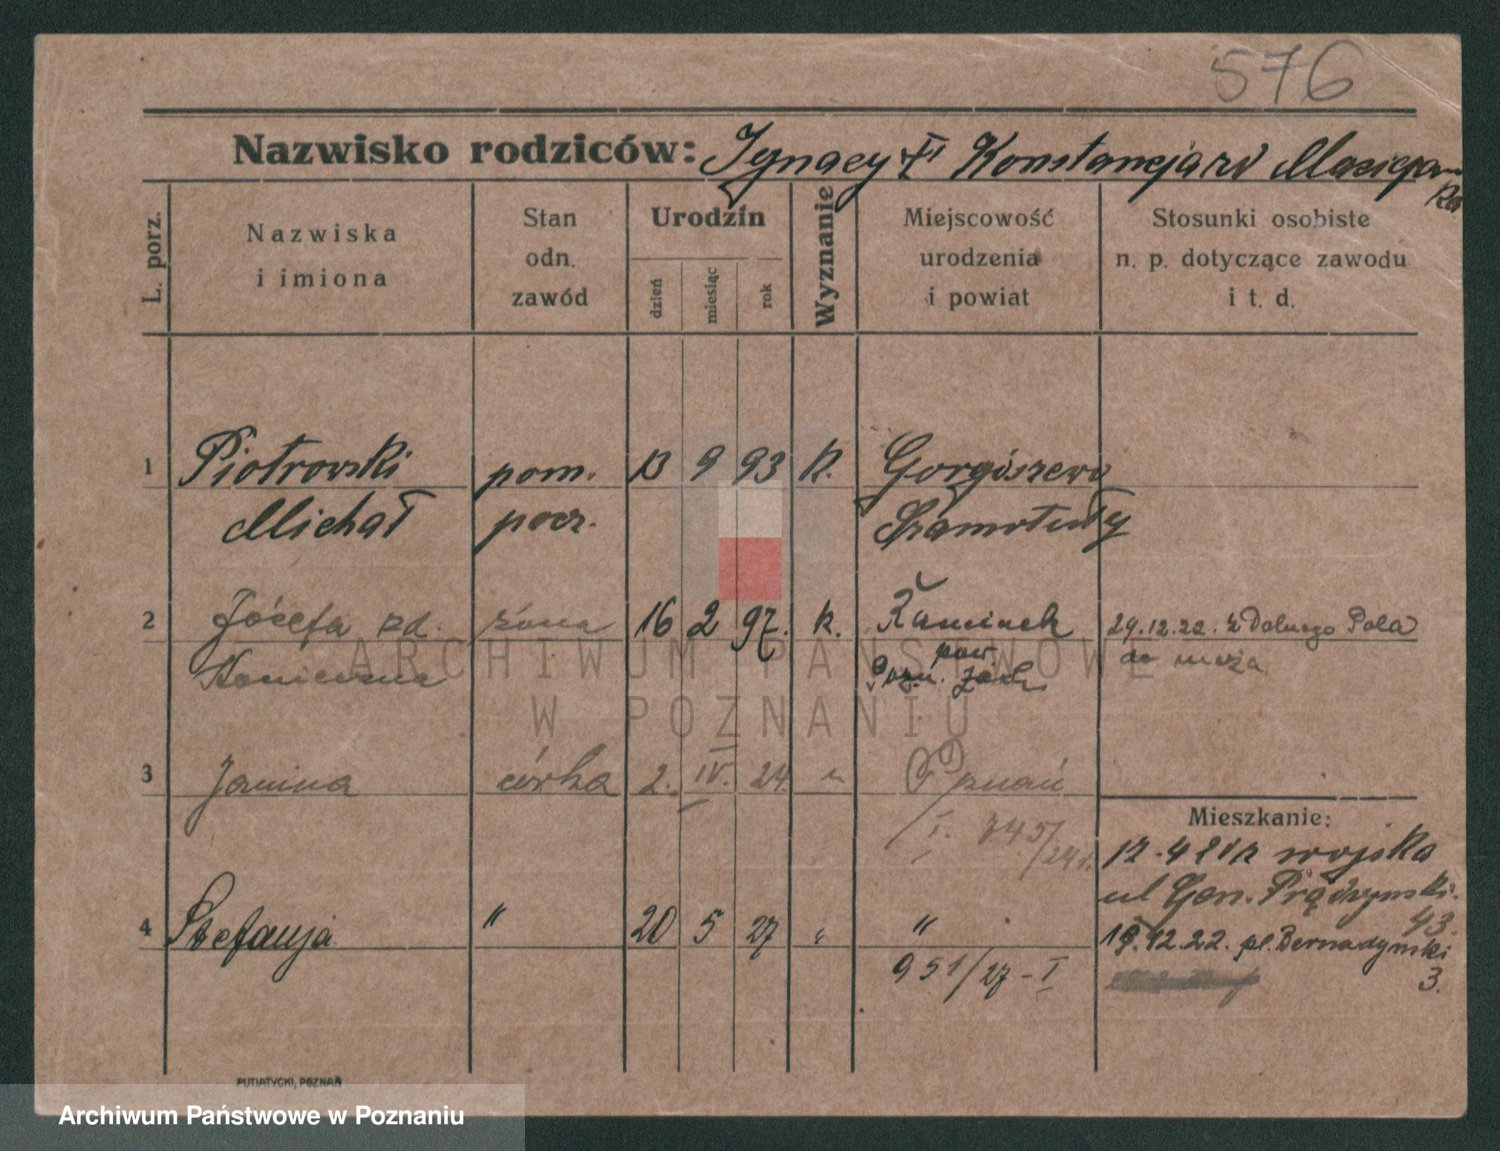 576
Nazwisko rodziców: Ignacy Konstancja zd
L. porz.
Nazwiska i imiona
Stan odn. zawód
Urodzin
dzień
miesiąc
rok
Wyznanie
Miejscowość urodzenia i powiat
Stosunki osobiste n. p. dotyczące zawodu i t. d.
1 Piotrowski pom. 13 9 93 K. Gorgoszewo
Michał pocz. Szamotuły
2 Józefa zd. żona 16 2 97. k. Kamionek 29.12.22. z Dolnego Pola
Konieczna pow. do męża
Pozn. Zach.
3 Janina córka 2. IV. 24. " Poznań
I. 345/24
Mieszkanie:
17.4 21 z wojska
ul Gen. Prądzyński.
43.
4 Stefanja " 20 5 27 " "
19.12.22. pl. Bernadynski
3.
951/27-I
PUTIATYCKI, POZNAŃ
ARCHIWUM PAŃSTWOWE
W POZNANIU
Archiwum Państwowe w Poznaniu